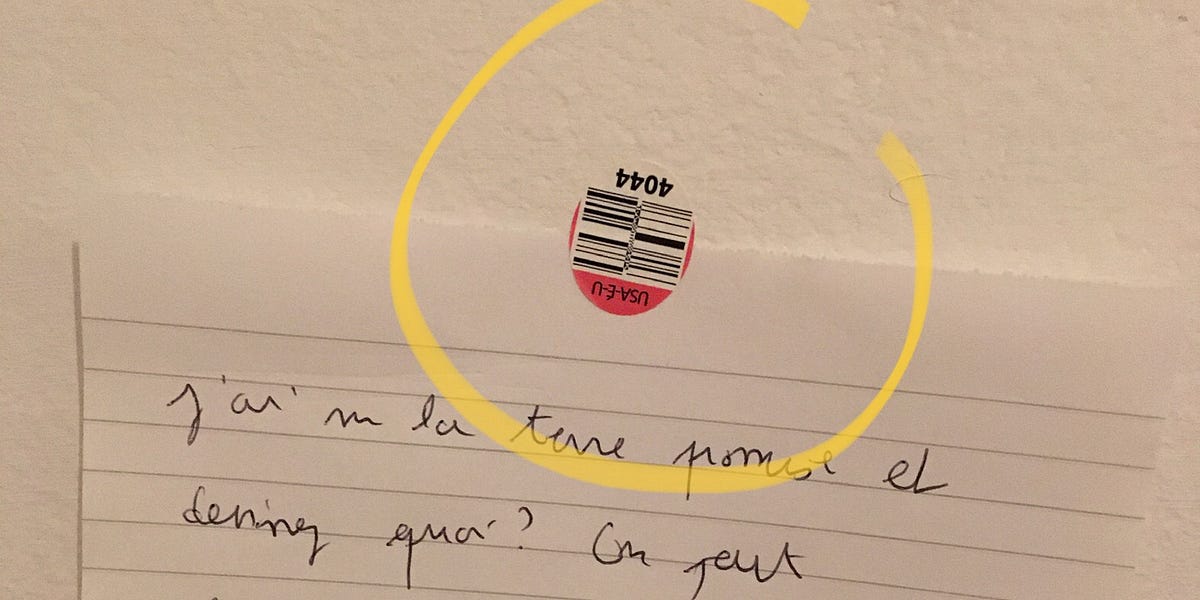 4044
USA-É-U
j'ai vu la terre promise et
devinez quoi? On peut